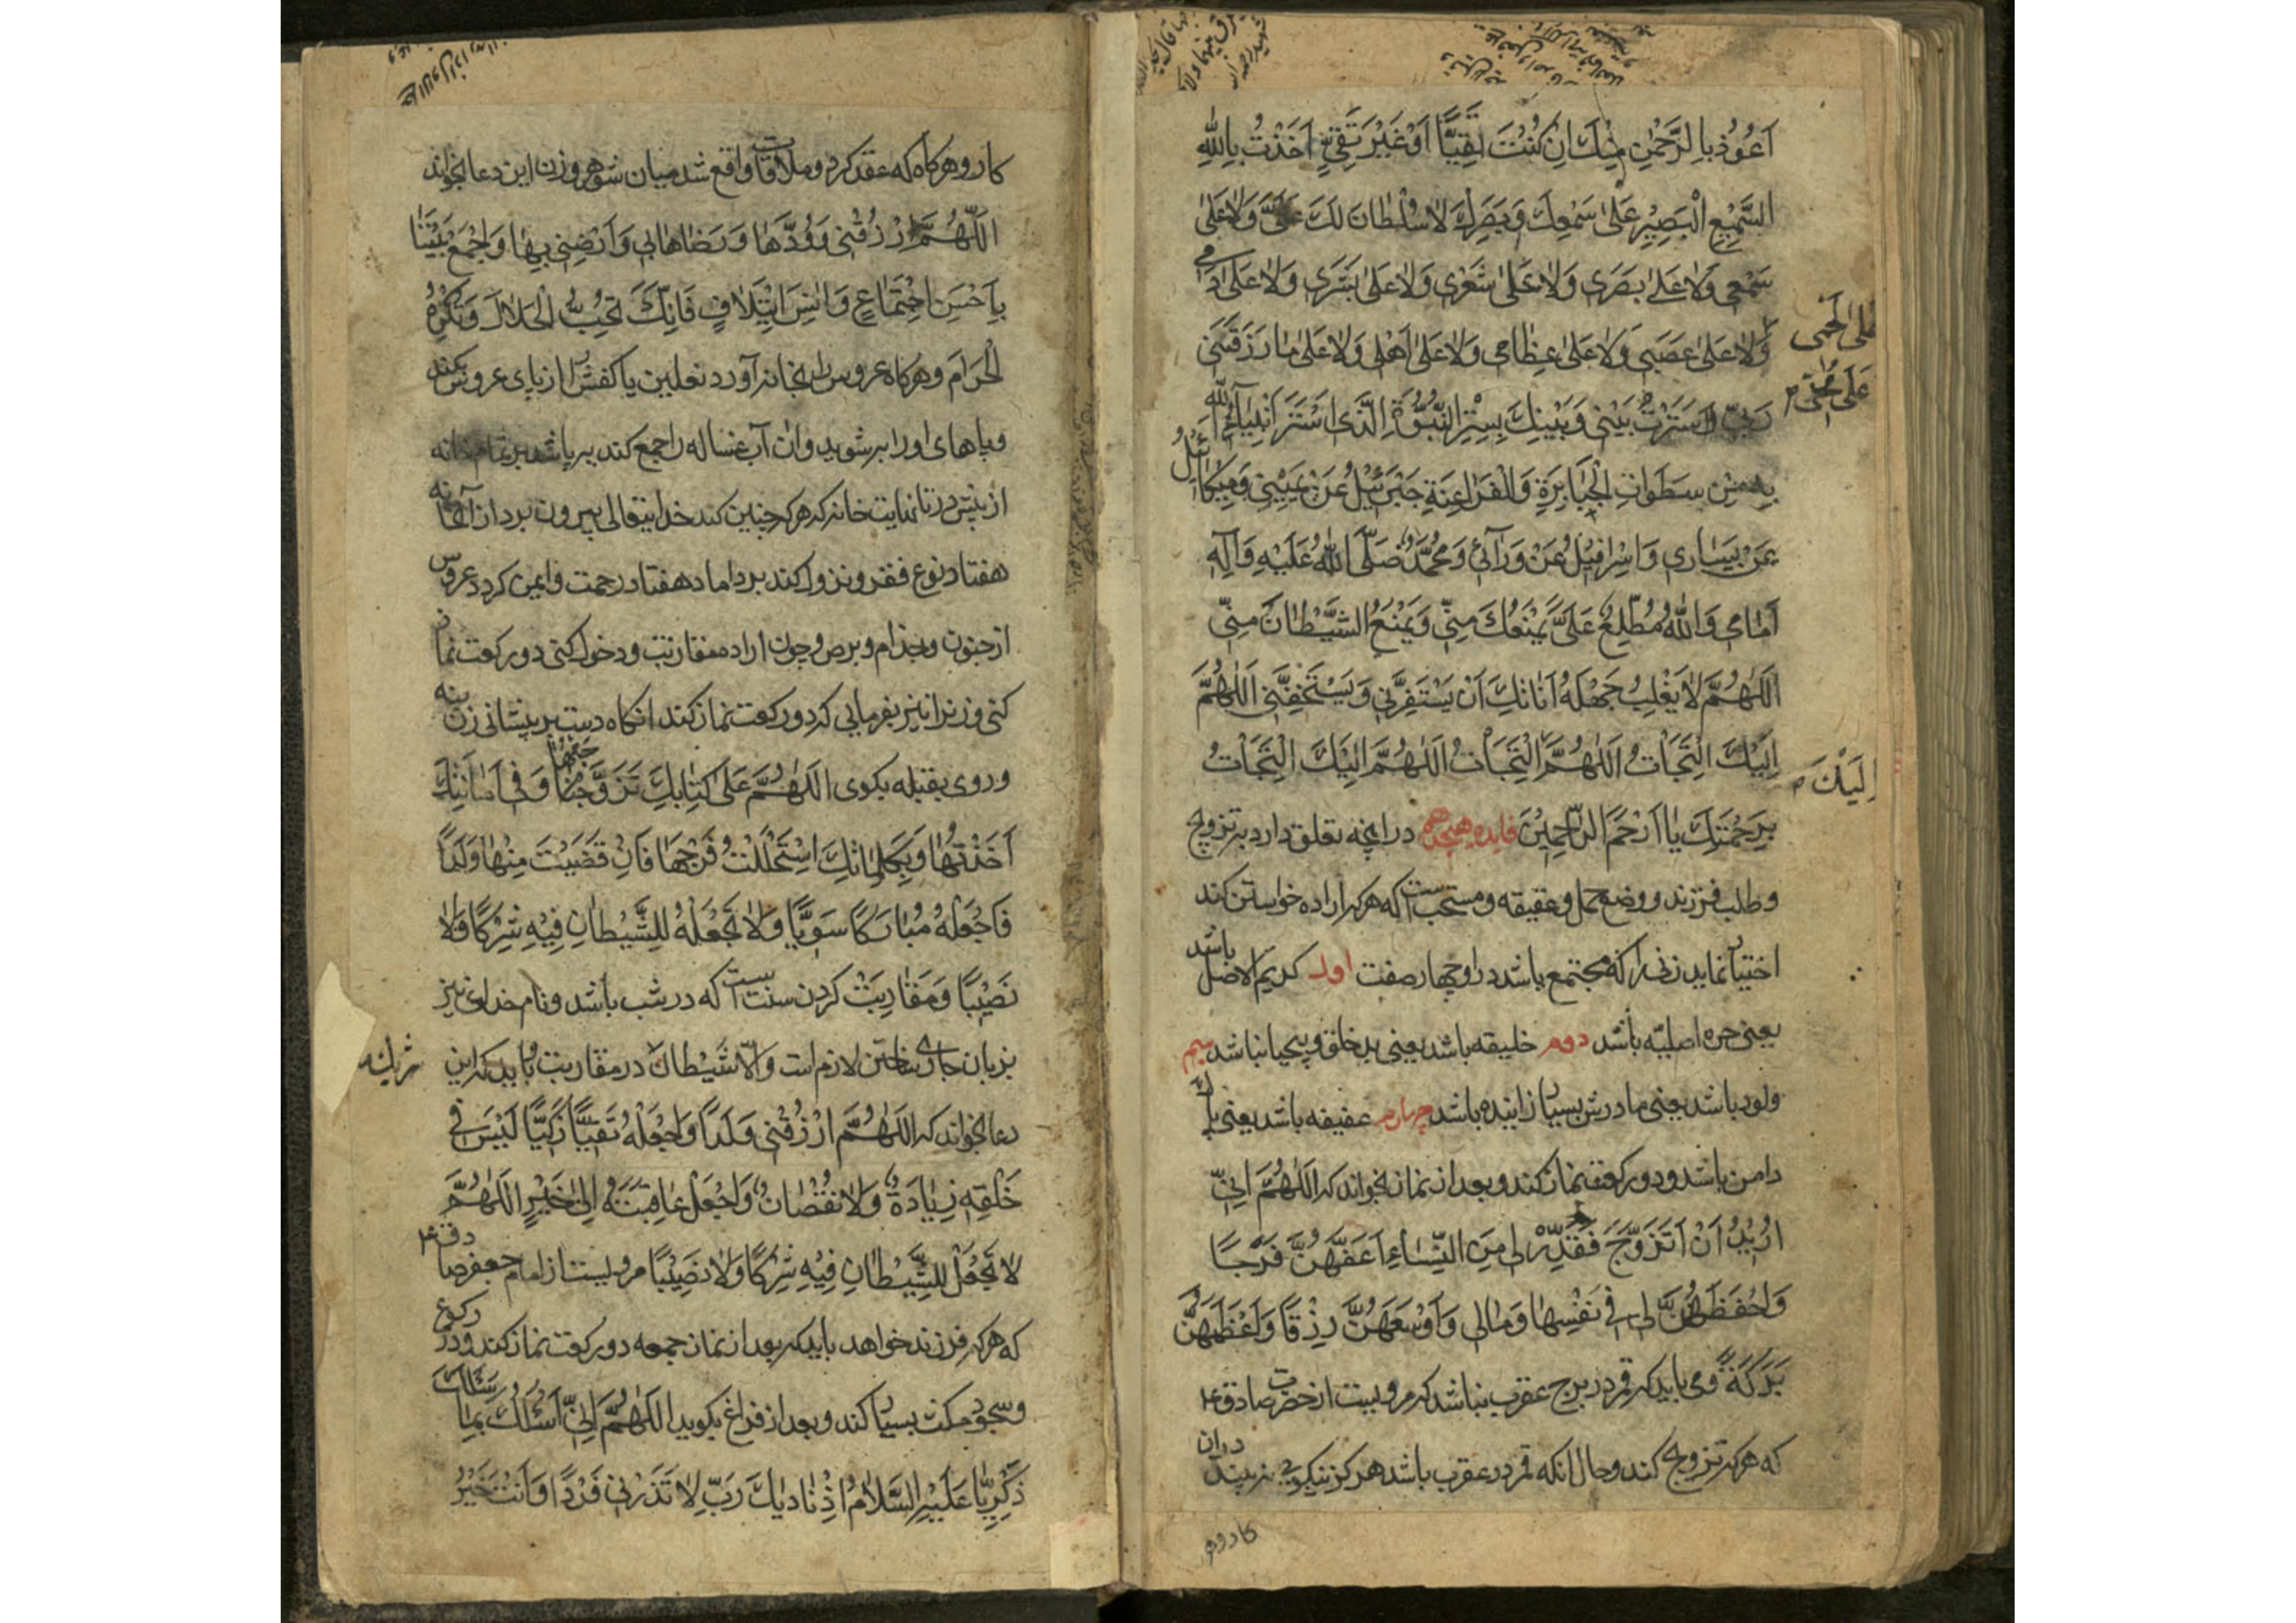 اَعُوُذُ بِالرَّحْمٰنِ مِنْكَ اِنْ كُنْتَ تَقِيًّا اَوْ غَيْرَ تَقِيٍّ اَخَذْتُ بِاللّٰهِ
السَّمِيْعِ الْبَصِيْرِ عَلىٰ سَمْعِكَ وَبَصَرِكَ لاٰ سُلْطٰانَ لَكَ عَلَىَّ وَلاٰ عَلىٰ
سَمْعِى وَلاٰ عَلىٰ بَصَرَى وَلاٰ عَلىٰ شَعْرِى وَلاٰ عَلىٰ بَشَرِى وَلاٰ عَلىٰ دَمى
عَلىٰ لَحْمى
وَلاٰ عَلىٰ عَصَبِى وَلاٰ عَلىٰ عِظٰامِى وَلاٰ عَلىٰ اَهْلِى وَلاٰ عَلىٰ مٰا رَزَقَنِى
عَلىٰ مُخّى
رَبّى سَتَرْتُ بَيْنِى وَبَيْنِكَ بِسِتْرِ النُّبُوَّةِ الَّذِى اسْتَتَرَ اَنْبِيٰآءُ اللّٰه
بِهِ مِنْ سَطَوٰاتِ الْجَبٰابِرَةِ وَالْفَرٰاعِنَةِ جَبْرَئيْلُ عَنْ يَمِيْنِى وَمِيْكٰائيلُ
عَنْ يَسٰارِى وَاِسْرٰافِيْلُ عَنْ وَرٰآئِى وَمُحَمَّدٌ صَلَّى اللّٰهُ عَلَيْهِ وَآلِهِ
اَمٰامِى وَاللّٰهُ مُطَّلِعٌ عَلَىَّ يَمْنَعُكَ مِنّىِ وَيَمْنَعُ الشَّيْطٰانَ مِنّىِ
اَللّٰهُمَّ لاٰ يَغْلِبُ جَهْلُهُ اَنٰاتَكَ اَنْ يَسْتَفِزَّنِى وَيَسْتَخِفَّنِى اَللّٰهُمَّ
اِلَيْكَ الْتَجَأْتُ اَللّٰهُمَّ الْتَجَأْتُ اَللّٰهُمَّ اِلَيْكَ الْتَجَأْتُ
اِلَيْكَ
بِرَحْمَتِكَ يٰا اَرْحَمَ الرّٰاحِمِيْنَ فايده هيجدهم در انچه تعلق دارد بتزويج
وطلب فرزند ووضع حمل وعقيقه ومستحب است كه هر كه اراده خواستن كند
اختيار نمايد زنى را كه مجتمع باشد در او چهار صفت اول كريم الاصل باشد
يعنى حره اصليّه باشد دوم خليقه باشد يعنى بدخلق وبيحيا نباشد سيم
ولود باشد يعنى مادرش بسيار زاينده باشد چهارم عفيفه باشد يعنى پاك
دامن باشد ودو ركعت نماز كند وبعد از نماز بخواند كه اَللّٰهُمَّ اِنّىِ
اُرِيْدُ اَنْ اَتَزَوَّجَ فَقَدِّرْ لِى مِنَ النِّسٰاءِ اَعَفَّهُنَّ فَرْجًا
وَاحْفَظَهُنَّ لِى فِى نَفْسِهٰا وَمٰالِى وَاَوْسَعَهُنَّ رِزْقًا وَاَعْظَمَهُنَّ
بَرَكَةً ومى بايد كه قمر در برج عقرب نباشد كه مرويست از حضرت صادق ع
كه هر كه تزويج كند وحال انكه قمر در عقرب باشد هرگز نيكويى نبيند دران
كار وو
كار و هر كاه كه عقد كرد وملاقات واقع شد ميان شوهر وزن اين دعا بخواند
اَللّٰهُمَّ ارْزُقْنِى وُدَّهٰا وَرِضٰاهٰا بى وَاَرْضِنِى بِهٰا وَاجْمَعْ بَيْنَنٰا
بِاَحْسَنِ اجْتِمٰاعٍ وَانَسِ ايْتِلاٰفٍ فَاِنَّكَ تُحِبُّ الْحَلاٰلَ وَتُكْرِهُ
الْحَرٰامَ وهر كاه عروس را بخانه آورد نعلين يا كفش را از پاى عروس بكند
وپاهاى او را بشويد وان آب غساله را جمع كند بپاشد بر تمام خانه
از پيش در تا نهايت خانه كه هر كه چنين كند خدايتعالى بيرون برد ازآنخانه
هفتاد نوع فقر ونزول كند بر داماد هفتاد رحمت وايمن گردد عروس
از جنون وجذام وبرص وچون اراده مقاربت ودخول كنى دو ركعت نماز
كنى وزن را نيز بفرمايى كه دو ركعت نماز كند انكاه دست بر پيشانى زن بنه
وروى بقبله بكوى اَللّٰهُمَّ عَلىٰ كِتٰابِكَ تَزَوَّجْتُهٰا وَفِى اَمٰانَتِكَ
اَخَذْتُهٰا وَبِكَلِمٰاتِكَ اسْتَحْلَلْتُ فَرْجَهٰا فَاِنْ قَضَيْتَ مِنْهٰا وَلَدًا
فَاجْعَلْهُ مُبٰارَكًا سَوِيًّا وَلاٰ تَجْعَلْهُ لِلشَّيْطٰانِ فِيْهِ شِرْكًا وَلاٰ
نَصِيْبًا وَمقاربت كردن سنت است كه در شب باشد ونام خدا نيز
بزبان جارى ساختن لازم است والّا شيطان در مقاربت وبايد كه اين
شريكست
دعا بخواند كه اَللّٰهُمَّ ارْزُقْنِى وَلَدًا وَاجْعَلْهُ تَقِيًّا زَكِيًّا لَيْسَ فى
خَلْقِهِ زِيٰادَةٌ وَلاٰ نُقْصٰانٌ وَاجْعَلْ عٰاقِبَتَهُ اِلىٰ خَيْرٍ اَللّٰهُمَّ
لاٰ تَجْعَلْ لِلشَّيْطٰانِ فِيْهِ شِرْكًا وَلاٰ نَصِيْبًا مرويست از امام جعفر صادق ع
كه هر كه فرزند خواهد بايد كه بعد از نماز جمعه دو ركعت نماز كند ودر ركوع
وسجود مكث بسيار كند وبعد از فراغ بكويد اَللّٰهُمَّ اِنّىِ اَسْئَلُكَ بِمٰا سَئَلَكَ
زَكَرِيّٰا عَلَيْهِ السَّلاٰمُ اِذْ نٰادٰيكَ رَبِّ لاٰ تَذَرْنِى فَرْدًا وَاَنْتَ خَيْرُ